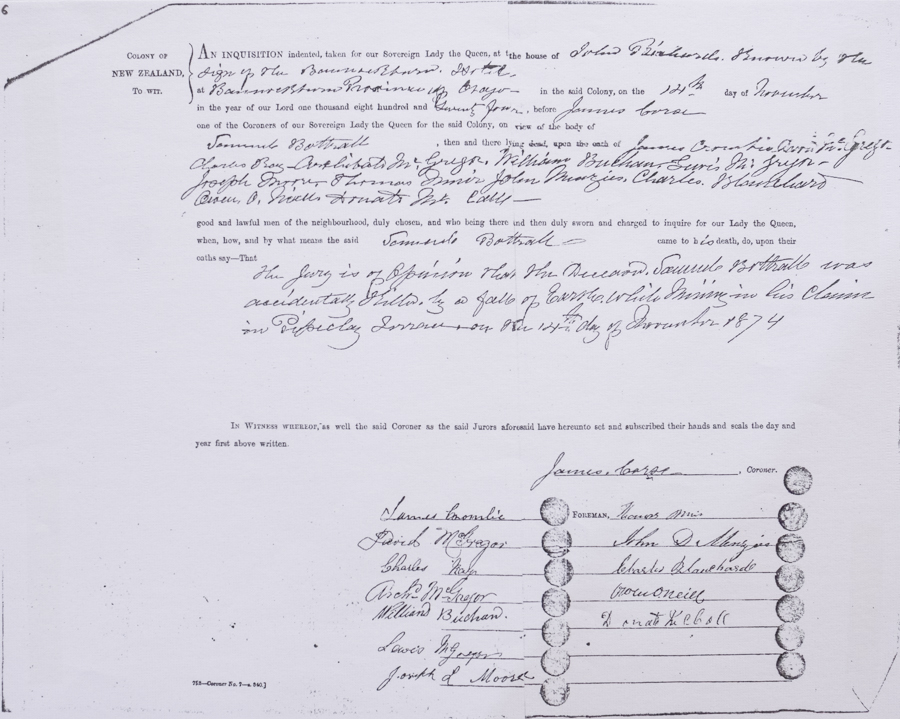 6
COLONY OF
NEW ZEALAND,
TO WIT.
AN INQUISITION indented, taken for our Sovereign Lady the Queen, at the house of John Richards. Known by the
Sign of the Bannockburn. Hotel.
at Bannockburn Province of Otago in the said Colony, on the 14th day of November
in the year of our Lord one thousand eight hundred and Seventy four, before James Corse
one of the Coroners of our Sovereign Lady the Queen for the said Colony, on view of the body of
Samuel Bottrall, then and there lying dead, upon the oath of James Crombie David McGregor
Charles Ray Archibald McGregor. William Buchan. Lewis McGregor
Joseph Moore Thomas Muir John Menzies. Charles. Blanchard
Owen O. Niell Donato
good and lawful men of the neighbourhood, duly chosen, and who being there and then duly sworn and charged to inquire for our Lady the Queen,
when, how, and by what means the said Samuel Bottrall came to his death, do, upon their
oaths say—That
The Jury is of Opinion that the Deceased. Samuel Bottrall was
accidentally Killed. by a fall of Earth. while Mining in his Claim
in Pipeclay on the 14th day of November 1874
IN WITNESS WHEREOF, as well the said Coroner as the said Jurors aforesaid have hereunto set and subscribed their hands and seals the day and
year first above written.
James. Corse, Coroner.
James Crombie FOREMAN, Thomas Muir
David McGregor John D Menzies
Charles Ray Charles Blanchard
Archd McGregor Owen Oneill
William Buchan. Donato
Lewis McGregor
Joseph L Moore
753—Coroner No. 7—a. 340.]